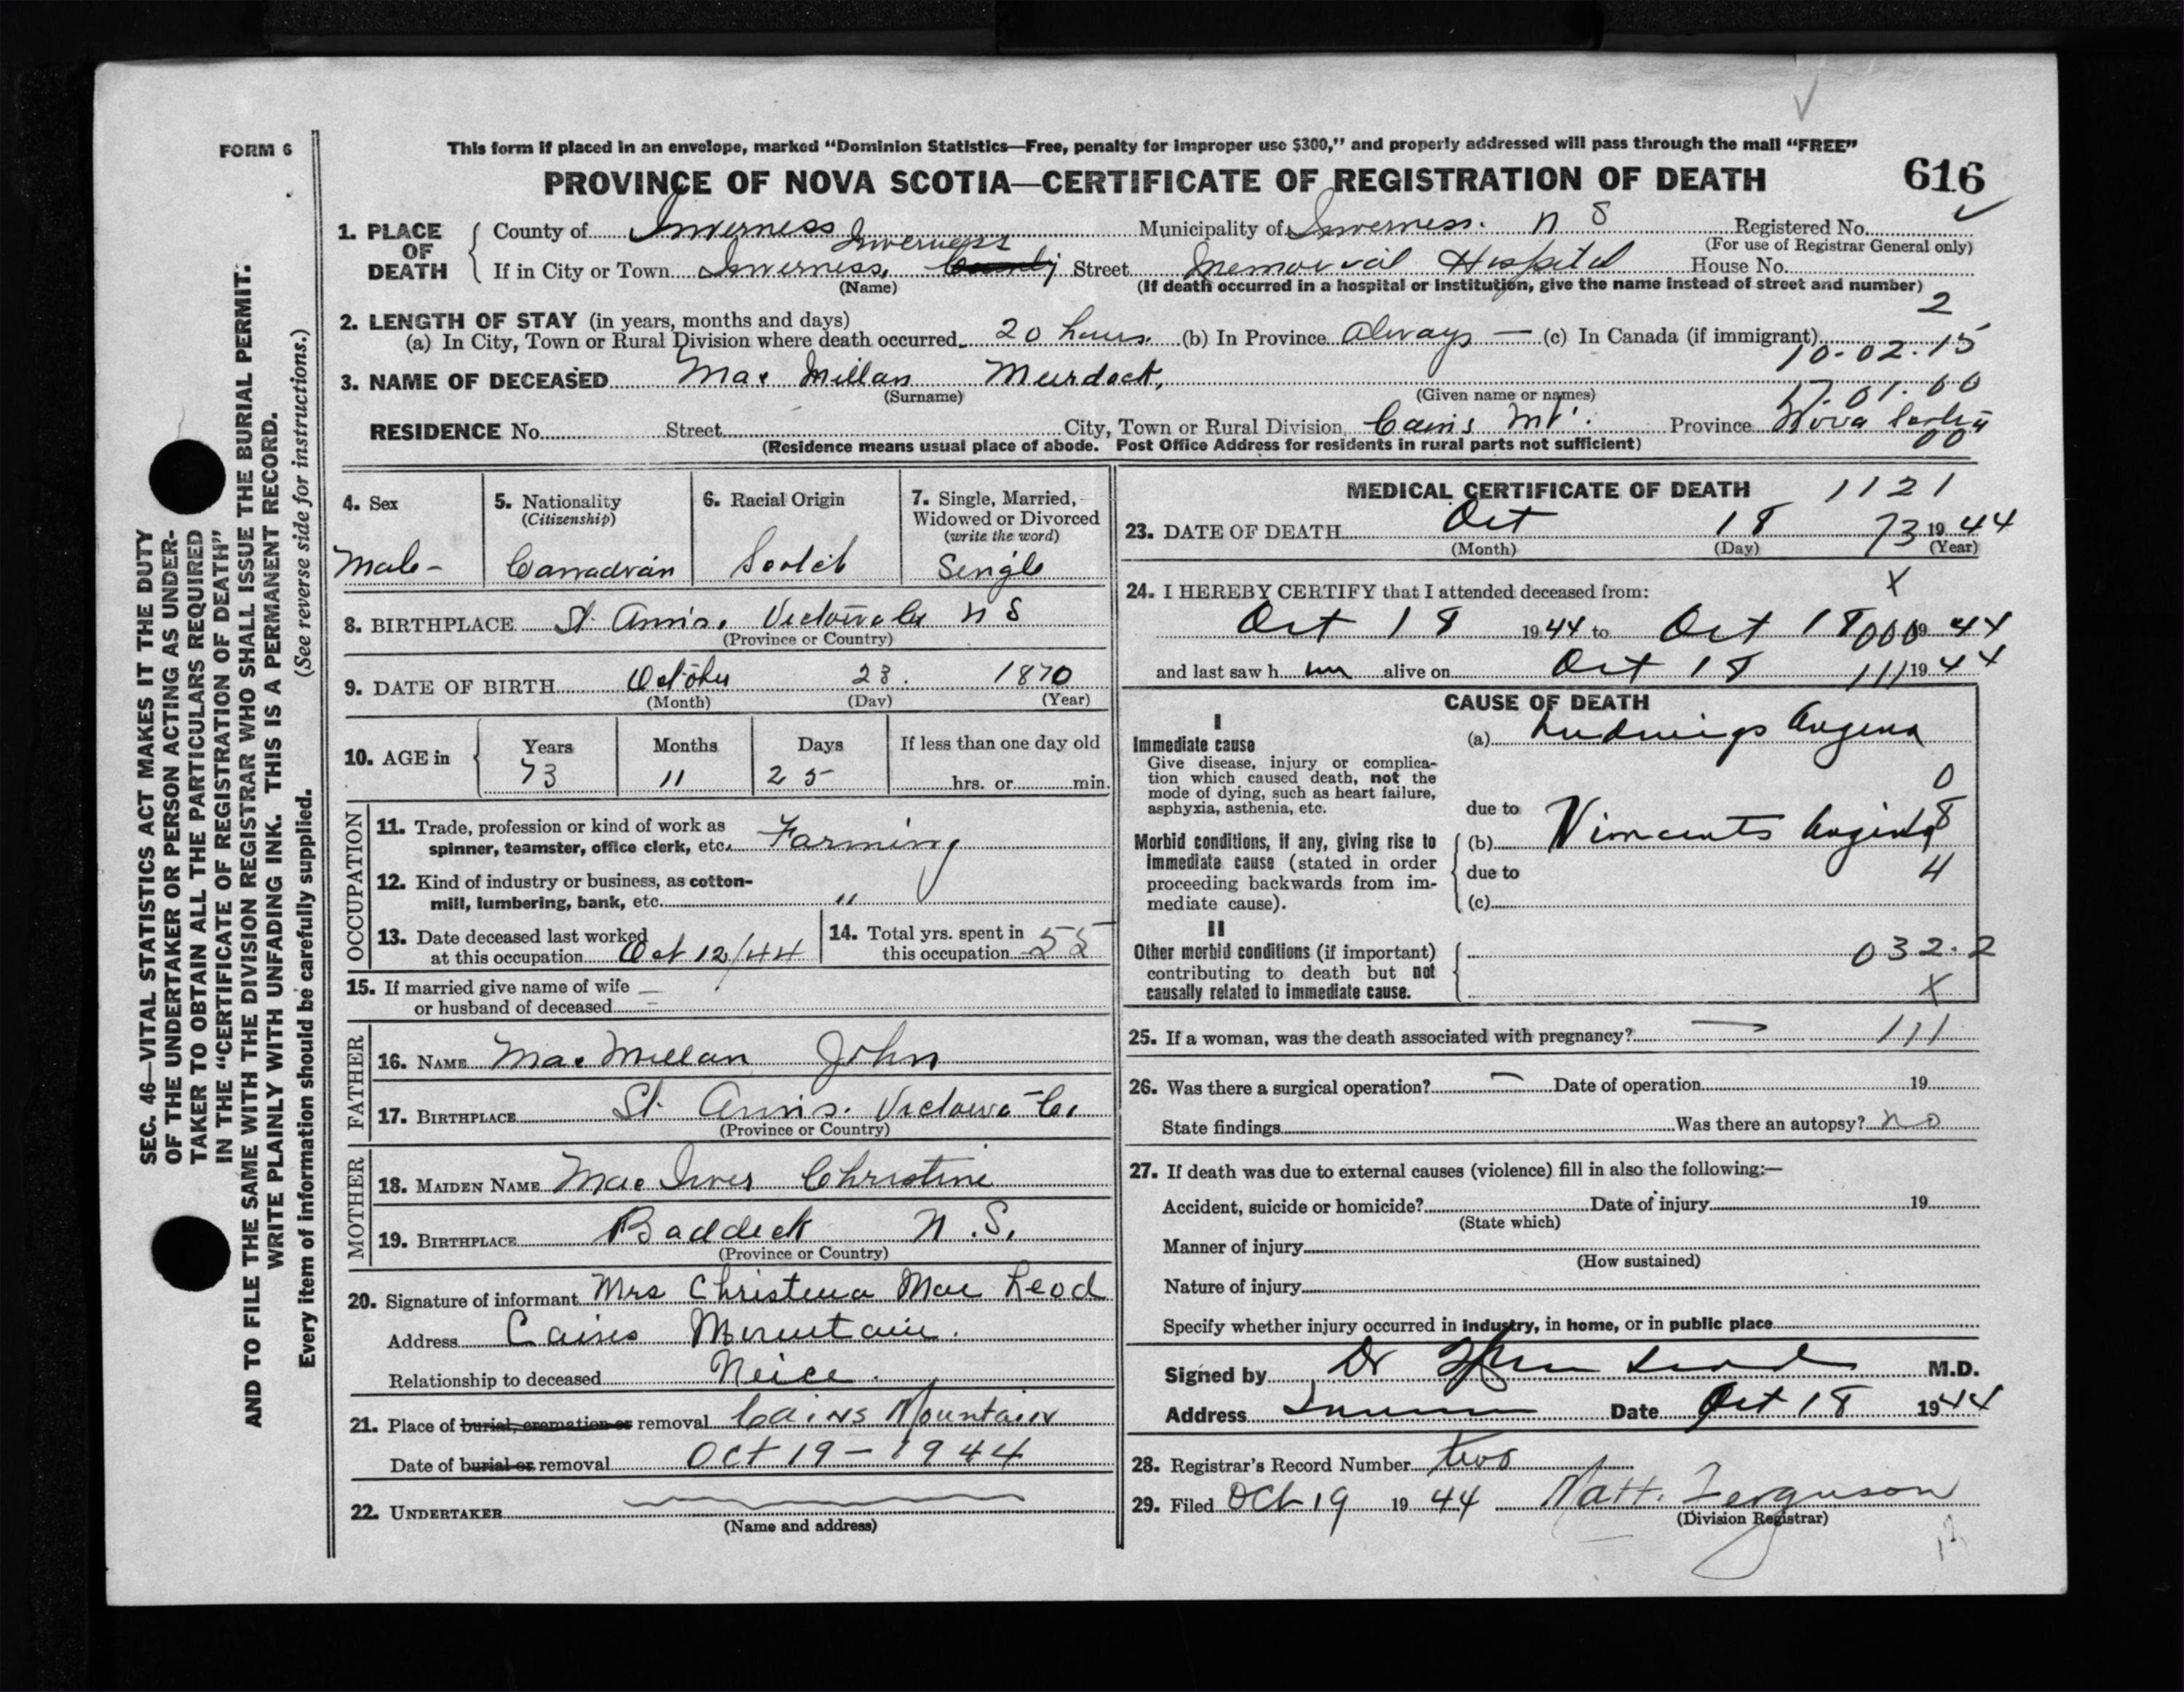 FORM 6
This form if placed in an envelope, marked “Dominion Statistics—Free, penalty for improper use $300,” and properly addressed will pass through the mail “FREE”
PROVINCE OF NOVA SCOTIA—CERTIFICATE OF REGISTRATION OF DEATH 616
1. PLACE OF DEATH
County of Inverness Municipality of Inverness. N S Registered No.
(For use of Registrar General only)
Inverness
If in City or Town Inverness, County Street Memorial Hospital House No.
(Name) (If death occurred in a hospital or institution, give the name instead of street and number)
2
2. LENGTH OF STAY (in years, months and days)
(a) In City, Town or Rural Division where death occurred 20 hours. (b) In Province Always — (c) In Canada (if immigrant)
10-02.15
3. NAME OF DECEASED Mac Millan Murdock,
(Surname) (Given name or names)
17.01.60
RESIDENCE No. Street City, Town or Rural Division Cains Mt. Province Nova Scotia
00
(Residence means usual place of abode. Post Office Address for residents in rural parts not sufficient)
4. Sex
Male-
5. Nationality
(Citizenship)
Canadian
6. Racial Origin
Scotch
7. Single, Married,
Widowed or Divorced
(write the word)
Single
8. BIRTHPLACE St. Anns. Victoria Co N S
(Province or Country)
9. DATE OF BIRTH October 23. 1870
(Month) (Day) (Year)
10. AGE in
Years Months Days If less than one day old
73 11 25 hrs. or min.
OCCUPATION
11. Trade, profession or kind of work as
spinner, teamster, office clerk, etc. Farming
12. Kind of industry or business, as cotton-
mill, lumbering, bank, etc. "
13. Date deceased last worked
at this occupation Oct 12/44
14. Total yrs. spent in
this occupation 55
15. If married give name of wife —
or husband of deceased —
FATHER
16. NAME MacMillan John
17. BIRTHPLACE St. Anns. Victoria Co.
(Province or Country)
MOTHER
18. MAIDEN NAME MacIver Christine
19. BIRTHPLACE Baddeck N.S.
(Province or Country)
20. Signature of informant Mrs Christena Mac Leod
Address Cains Mountain.
Relationship to deceased Neice.
21. Place of burial, cremation or removal Cains Mountain
Date of burial or removal Oct 19-1944
22. UNDERTAKER
(Name and address)
MEDICAL CERTIFICATE OF DEATH 1121
23. DATE OF DEATH Oct 18 73 1944
(Month) (Day) (Year)
24. I HEREBY CERTIFY that I attended deceased from: X
Oct 18 1944 to Oct 18 000 1944
and last saw h im alive on Oct 18 111 1944
CAUSE OF DEATH
I
Immediate cause
Give disease, injury or complica-
tion which caused death, not the
mode of dying, such as heart failure,
asphyxia, asthenia, etc.
(a) Ludwigs Angina
0
due to
Morbid conditions, if any, giving rise to
immediate cause (stated in order
proceeding backwards from im-
mediate cause).
(b) Vincents Angina
8
due to
4
(c)
II
Other morbid conditions (if important)
contributing to death but not
causally related to immediate cause.
032.2
X
25. If a woman, was the death associated with pregnancy? — 111
26. Was there a surgical operation? — Date of operation 19
State findings Was there an autopsy? no
27. If death was due to external causes (violence) fill in also the following:—
Accident, suicide or homicide? Date of injury 19
(State which)
Manner of injury
(How sustained)
Nature of injury
Specify whether injury occurred in industry, in home, or in public place
Signed by Dr M.D.
Address Date Oct 18 1944
28. Registrar's Record Number two
29. Filed Oct 19 1944 Matt. Ferguson
(Division Registrar)
SEC. 46—VITAL STATISTICS ACT MAKES IT THE DUTY
OF THE UNDERTAKER OR PERSON ACTING AS UNDER-
TAKER TO OBTAIN ALL THE PARTICULARS REQUIRED
IN THE “CERTIFICATE OF REGISTRATION OF DEATH”
AND TO FILE THE SAME WITH THE DIVISION REGISTRAR WHO SHALL ISSUE THE BURIAL PERMIT.
WRITE PLAINLY WITH UNFADING INK. THIS IS A PERMANENT RECORD.
Every item of information should be carefully supplied. (See reverse side for instructions.)